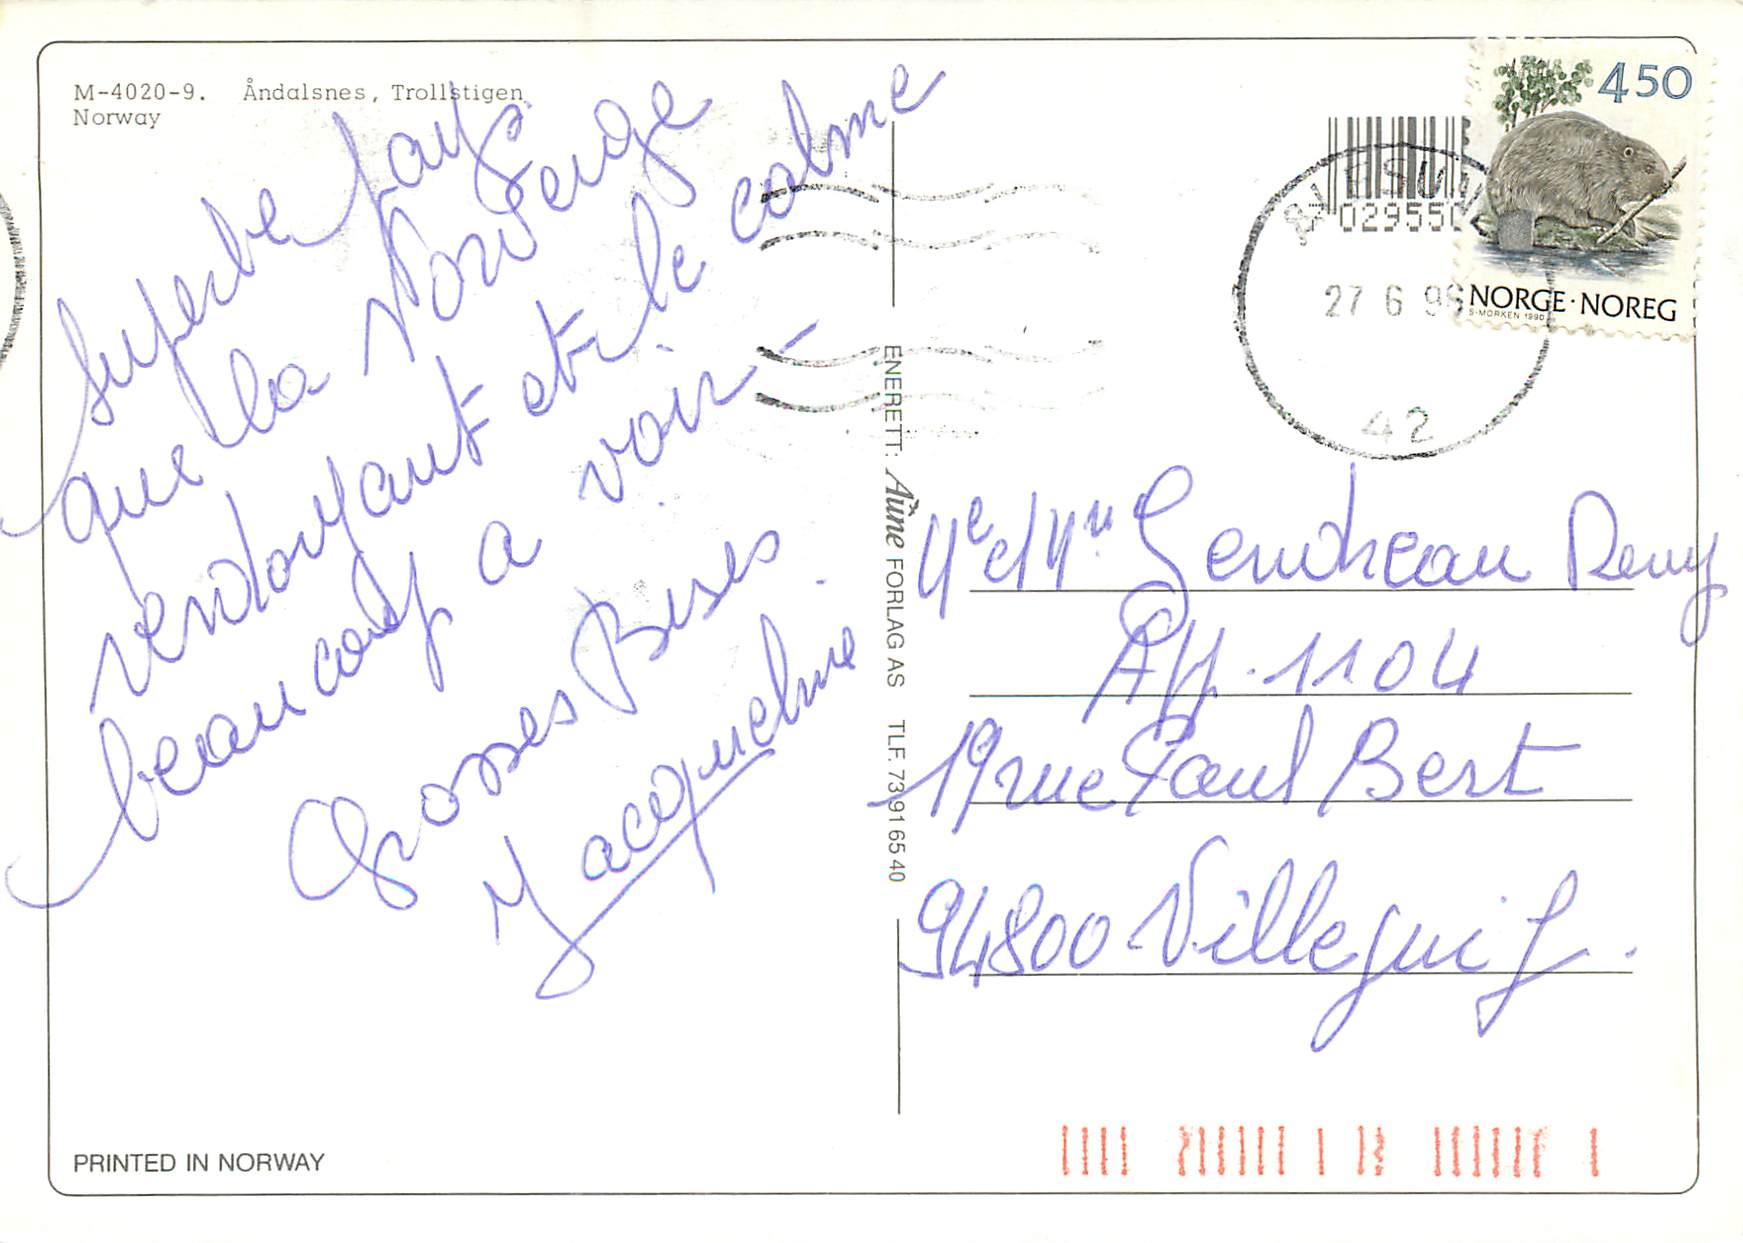 M-4020-9. Åndalsnes, Trollstigen
Norway
Superbe pays
que la Norvège
verdoyant et le calme
beaucoup a voir -
Grosses Bises.
Jacqueline
ENERETT: Aune FORLAG AS TLF. 73 91 65 40
PRINTED IN NORWAY
450
NORGE·NOREG
S·MORKEN 1990
02955
27 6 9
42
Me et Mr Gendreau Remy
App. 1104
19 rue Paul Bert
94800 Villejuif.